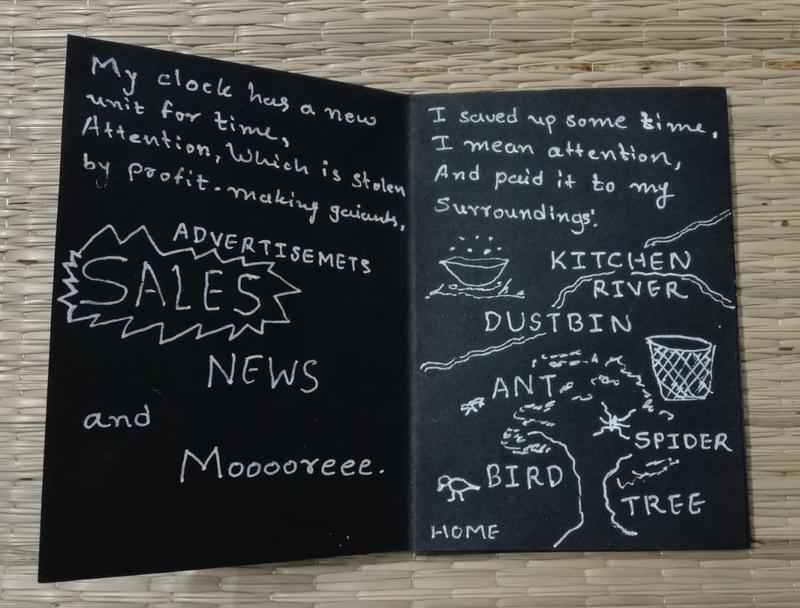 My clock has a new
unit for time,
Attention, Which is stolen
by profit-making gaiants,
ADVERTISEMETS
SALES
NEWS
and
Mooooreee.
I saved up some time,
I mean attention,
And paid it to my
Surroundings:
KITCHEN
RIVER
DUSTBIN
ANT
SPIDER
BIRD
TREE
HOME